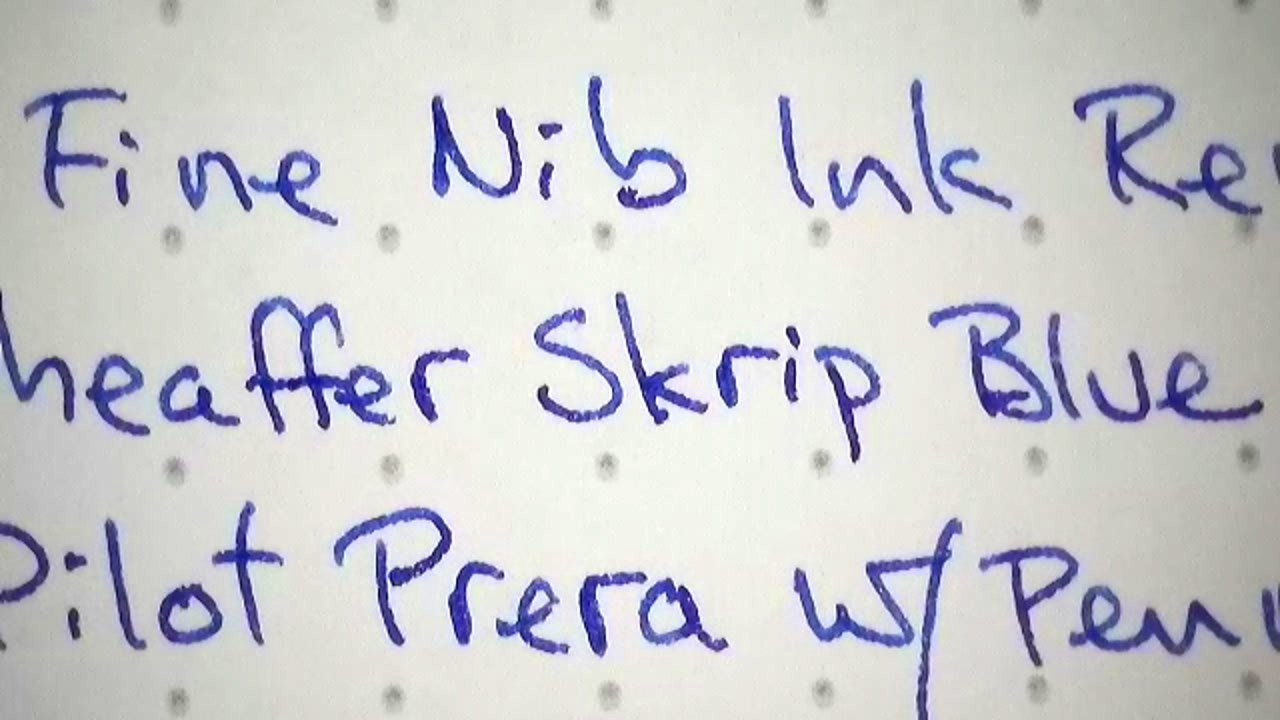 Fine Nib Ink Re
heaffer Skrip Blue
Pilot Prera w/ Pen